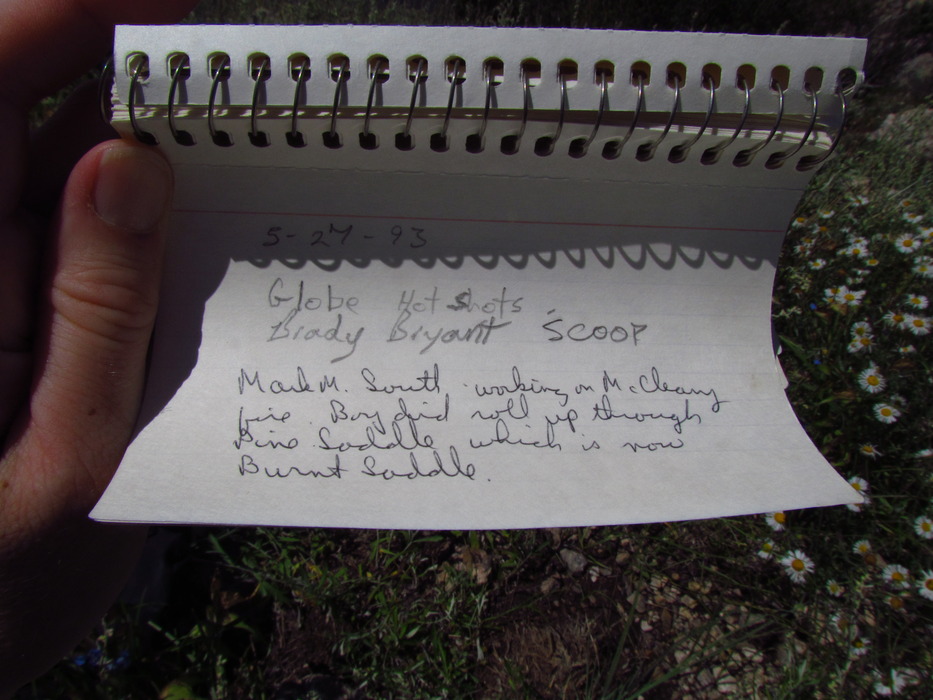 5-27-93
Globe Hot Shots
Brady Bryant SCOOP
Mark M. South working on McCleary
fire. Boy did roll up through
Pine Saddle which is now
Burnt Saddle.